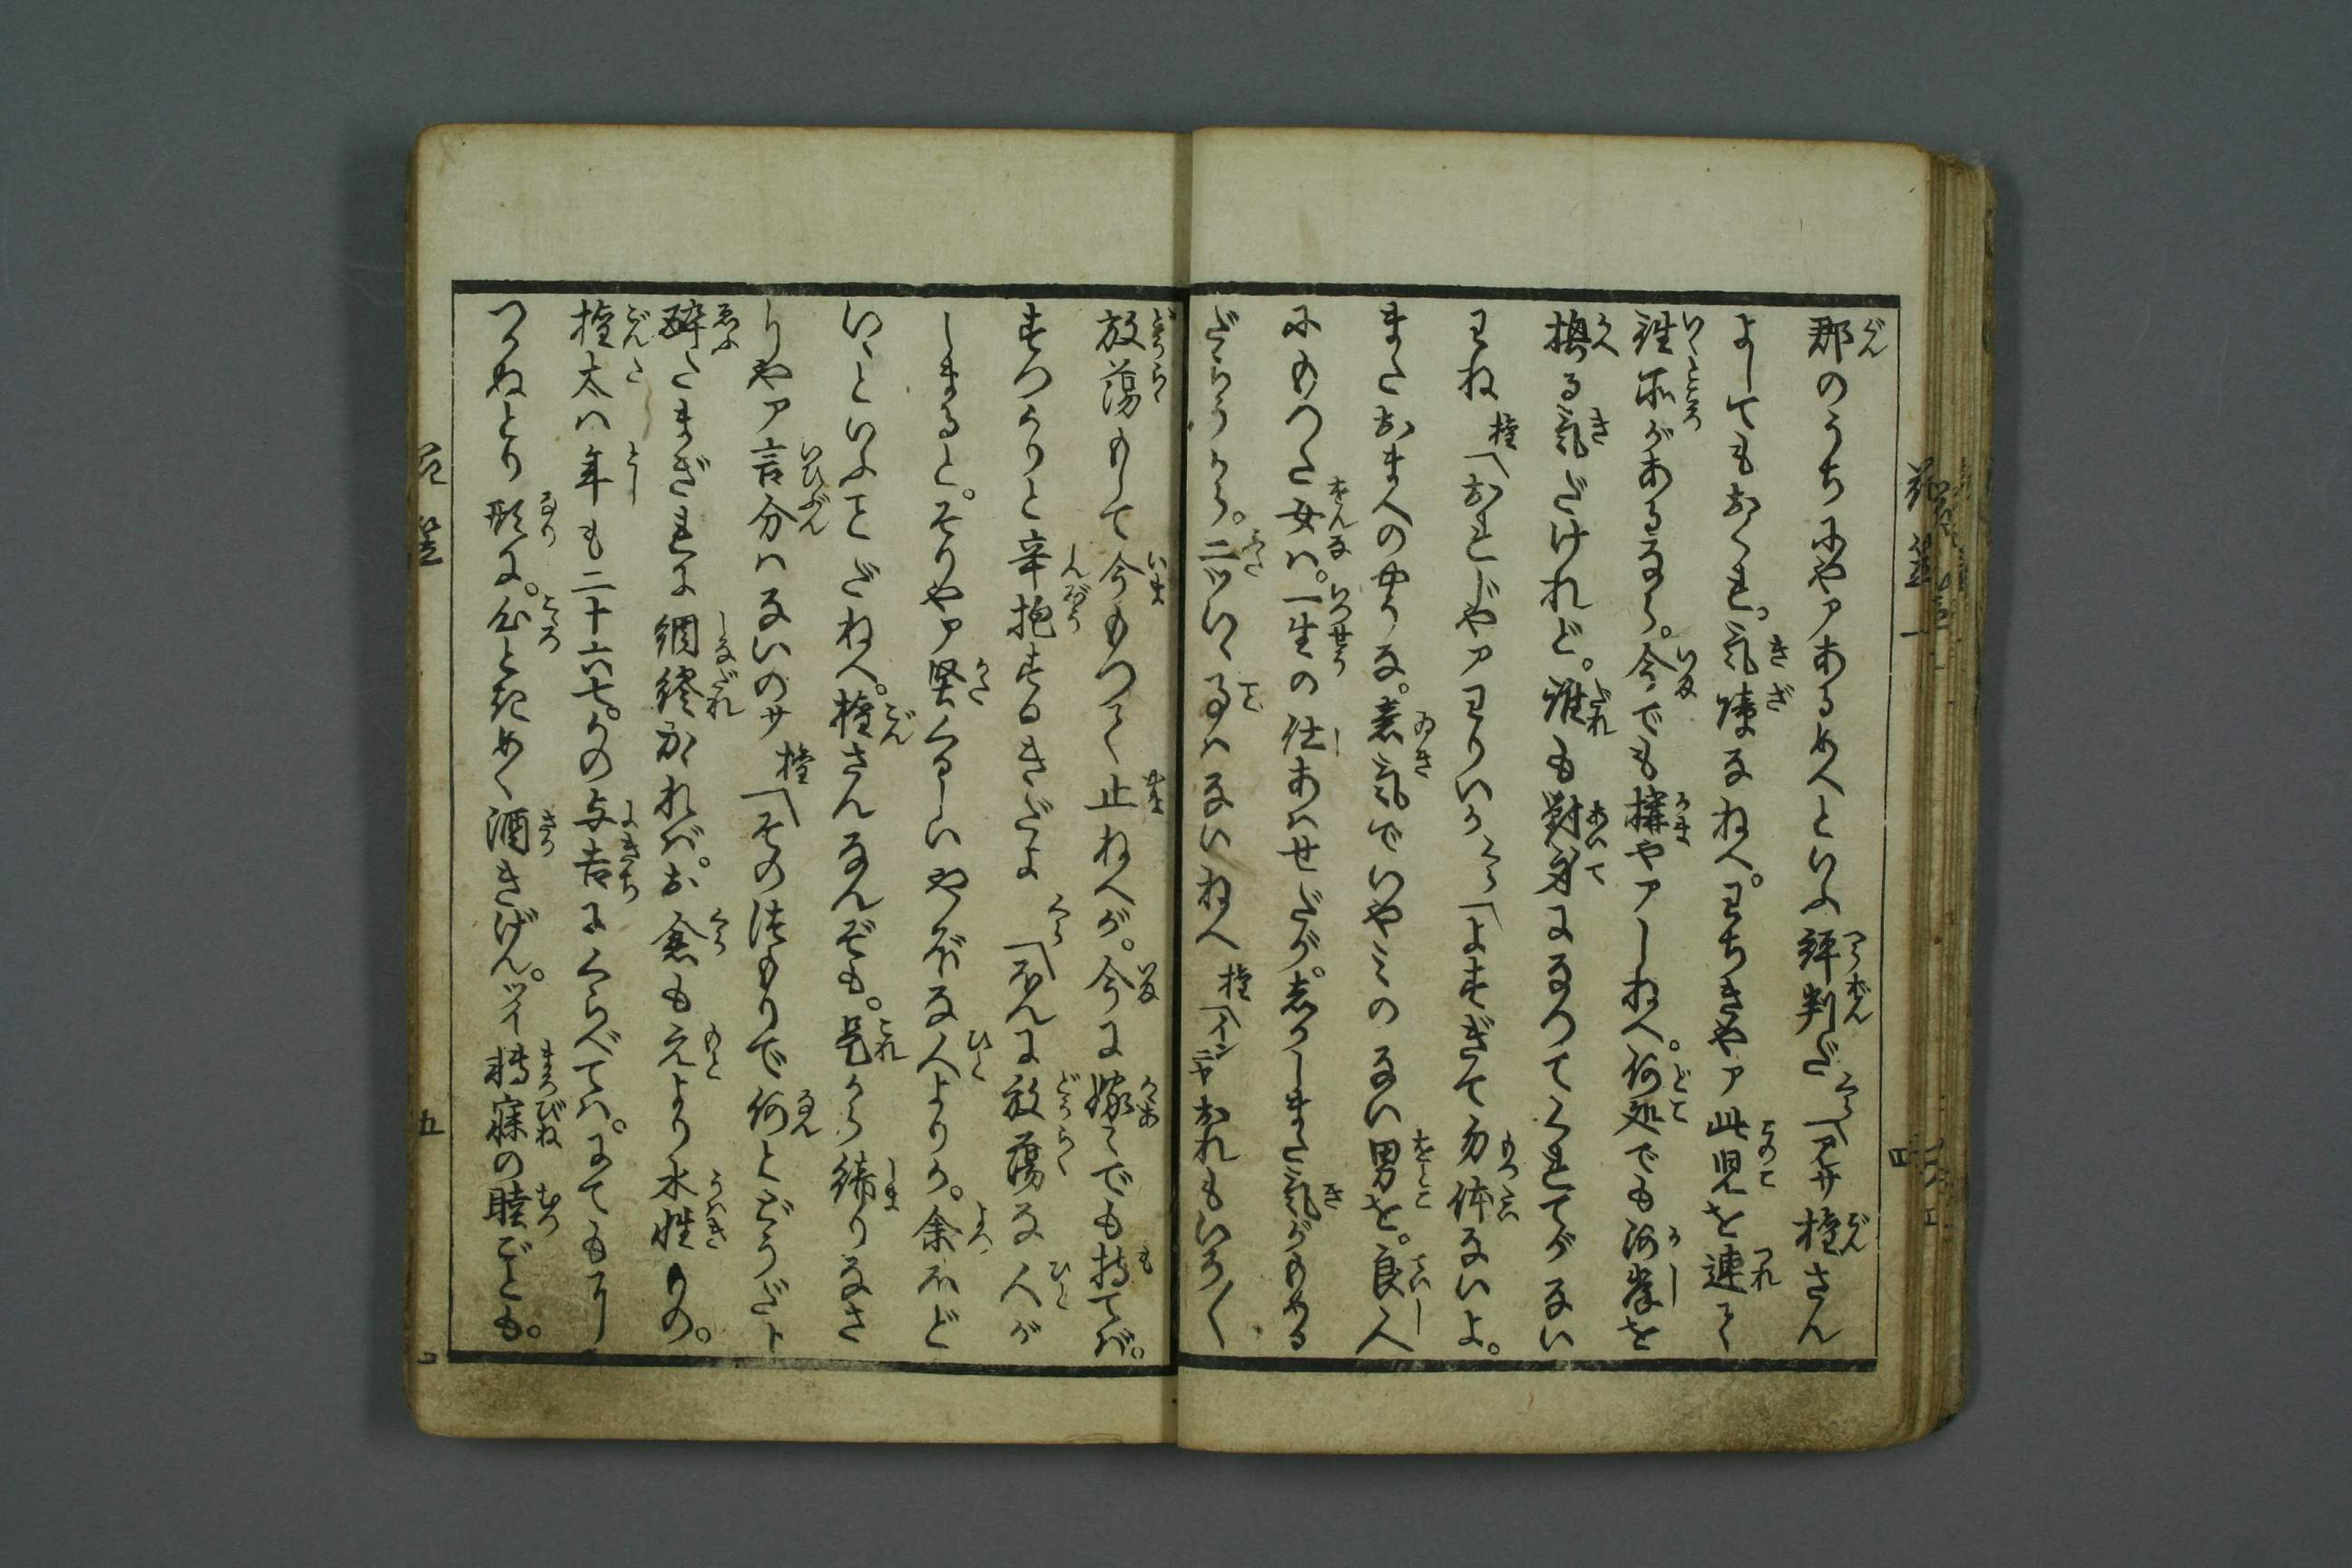 郡のうちにやアあるめへといふ評判だ くら「アサ権さん
よしてもおくれ。気障なねへ。わちきやア此児を連て
往所があるなら。今でも構やアしねへ。何処でも河岸を
換る気だけれど。誰も対手になつてくれてがない
わね 権「おれじやアわりいか くら「よすぎて勿体ないよ。
またおまへのやうな。意気でいやみのない男を。良人
にもつた女は。一生の仕あはせだが。しかしまた気がもめる
だらうから。二ツいゝ事はないねへ 権「インニヤおれもいろ〱
放蕩もして今もつてく止ねへが。今に嫁アでも持てば。
すつかりと辛抱するきだよ くら「ほんに放蕩な人が
しまると。そりやア堅くるしいやぼな人よりか。余ほど
いゝといふことだねへ。権さんなんぞも。是から締りなさ
りやア言分はないのサ 権「その積もりで何とどうだト
酔たまぎれにしなだれかゝれば。お倉も元より水性もの。
権太は年も二十六七。かの与吉にくらべては。にてもに
つかぬとり形に。心ときめく酒きげん。ツイ転寐の睦ごとも。
四
五